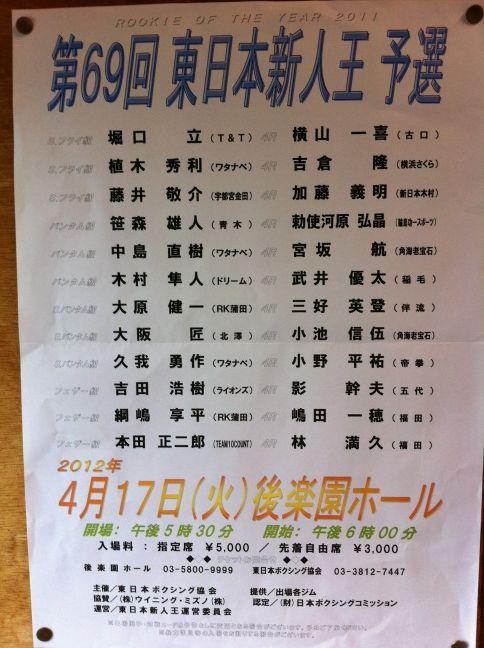 ROOKIE OF THE YEAR 2011
第69回 東日本新人王 予選
S.フライ級 堀口 立 (T&T) 4R 横山 一喜 (古口)
S.フライ級 植木 秀利 (ワタナベ) 4R 吉倉 隆 (横浜さくら)
S.フライ級 藤井 敬介 (宇都宮金田) 4R 加藤 義明 (新日本木村)
バンタム級 笹森 雄人 (青木) 4R 勅使河原 弘晶 (輪島功一スポーツ)
バンタム級 中島 直樹 (ワタナベ) 4R 宮坂 航 (角海老宝石)
バンタム級 木村 隼人 (ドリーム) 4R 武井 優太 (稲毛)
S.バンタム級 大原 健一 (RK蒲田) 4R 三好 英登 (伴流)
S.バンタム級 大阪 匠 (北澤) 4R 小池 信伍 (角海老宝石)
S.バンタム級 久我 勇作 (ワタナベ) 4R 小野 平祐 (帝拳)
フェザー級 吉田 浩樹 (ライオンズ) 4R 影 幹夫 (五代)
フェザー級 綱嶋 享平 (RK蒲田) 4R 嶋田 一穂 (福田)
フェザー級 本田 正二郎 (TEAM10COUNT) 4R 林 満久 (福田)
2012年
4月17日(火)後楽園ホール
開場: 午後5時30分 開始: 午後6時00分
入場料 : 指定席 ¥5,000 / 先着自由席 ¥3,000
◆ ◆ チケットお問合せ ◆ ◆
後楽園ホール 03-5800-9999 東日本ボクシング協会 03-3812-7447
主催/東日本ボクシング協会 提供/出場各ジム
協賛/(株)ウイニング・ミズノ(株) 認定/(財)日本ボクシングコミッション
運営/東日本新人王運営委員会